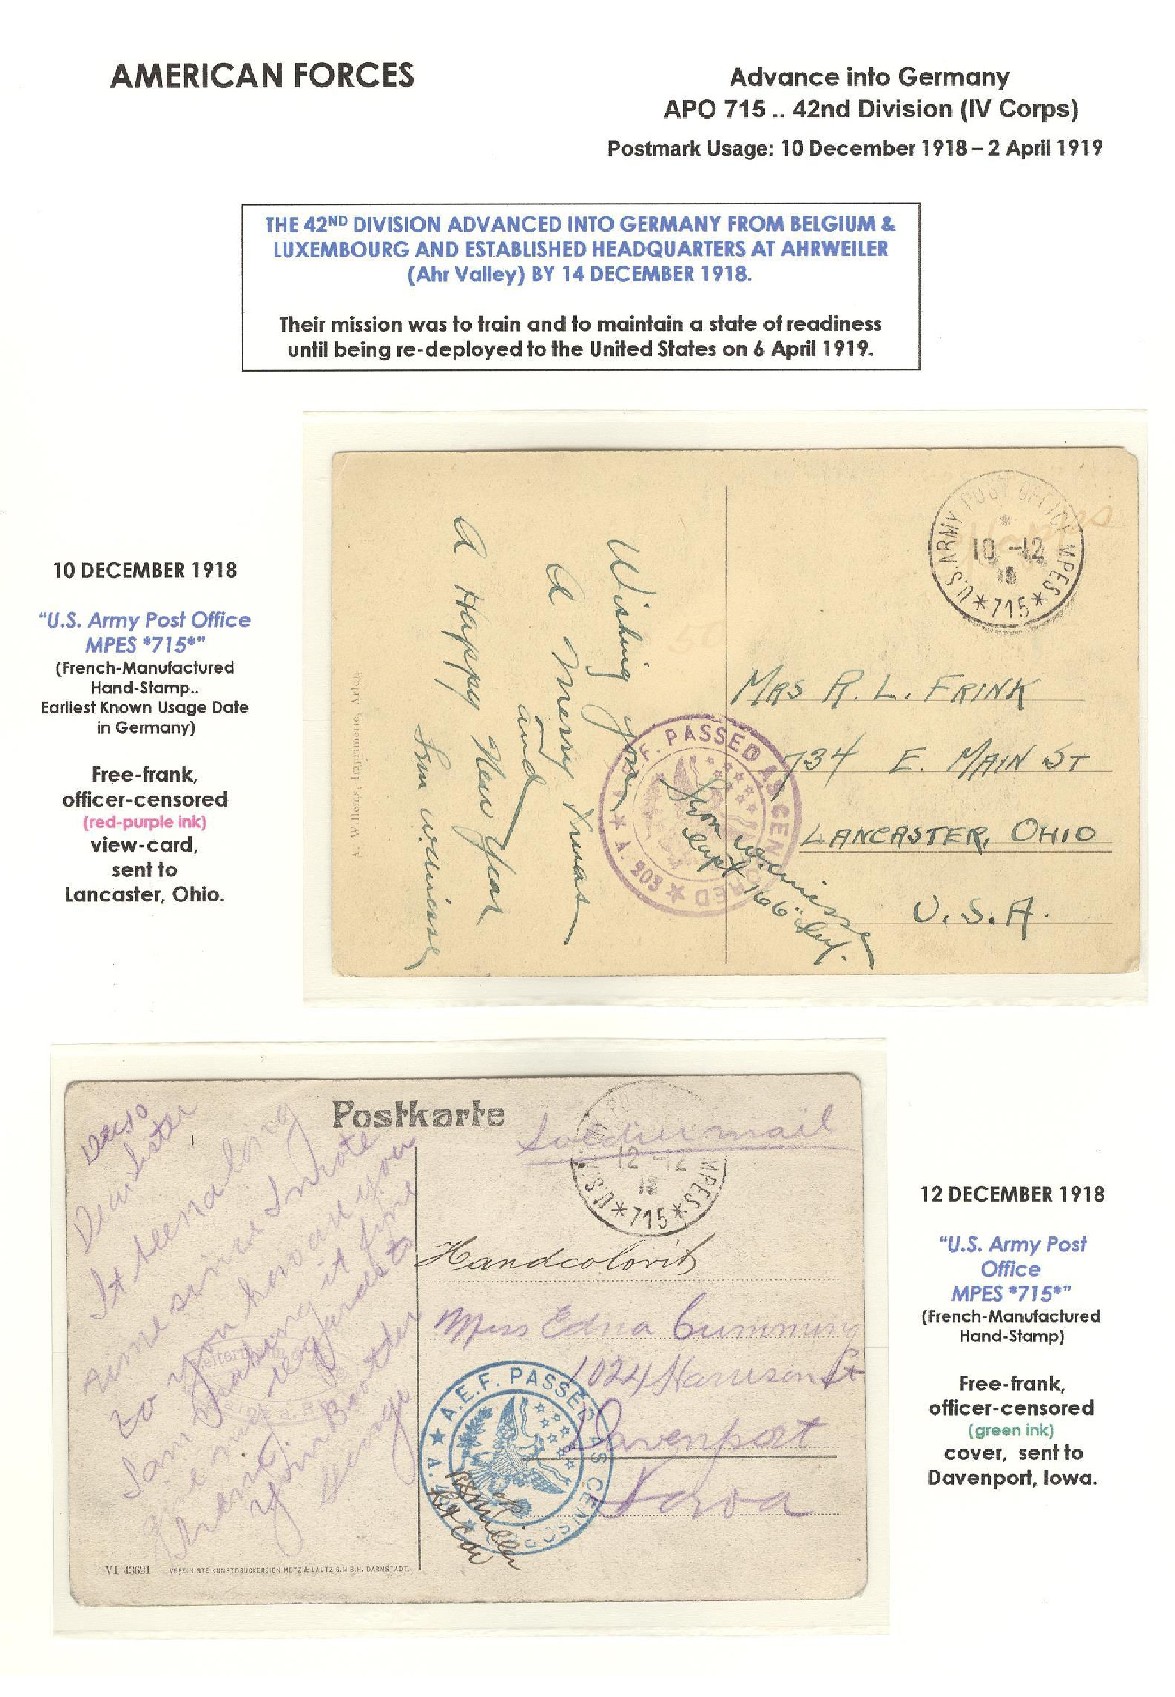 AMERICAN FORCES
Advance into Germany
APO 715 .. 42nd Division (IV Corps)
Postmark Usage: 10 December 1918 – 2 April 1919
THE 42ND DIVISION ADVANCED INTO GERMANY FROM BELGIUM &
LUXEMBOURG AND ESTABLISHED HEADQUARTERS AT AHRWEILER
(Ahr Valley) BY 14 DECEMBER 1918.
Their mission was to train and to maintain a state of readiness
until being re-deployed to the United States on 6 April 1919.
10 DECEMBER 1918
"U.S. Army Post Office
MPES *715*"
(French-Manufactured
Hand-Stamp..
Earliest Known Usage Date
in Germany)
Free-frank,
officer-censored
(red-purple ink)
view-card,
sent to
Lancaster, Ohio.
Wishing you
A Merry Xmas
and
A Happy New Year
U.S. ARMY POST OFFICE MPES
10 -12
18
*715*
MRS R. L. FRINK
734 E. MAIN ST
LANCASTER, OHIO
U.S.A.
A.E.F. PASSED AS CENSORED
★ A. 203 ★
Capt 166" Inf.
Postkarte
Soldier mail
U.S. MPES
12 -12
18
*715*
Dec 10
Dear Sister
It been along
time since I wrote
to you how are you
I am feeling it fine
give my regards to
them.
your Brother
George
Miss Edna Cumming
1024 Harrison St
Davenport
Iowa
A.E.F. PASSED AS CENSORED
★ A.
VI 43691
12 DECEMBER 1918
"U.S. Army Post
Office
MPES *715*"
(French-Manufactured
Hand-Stamp)
Free-frank,
officer-censored
(green ink)
cover, sent to
Davenport, Iowa.